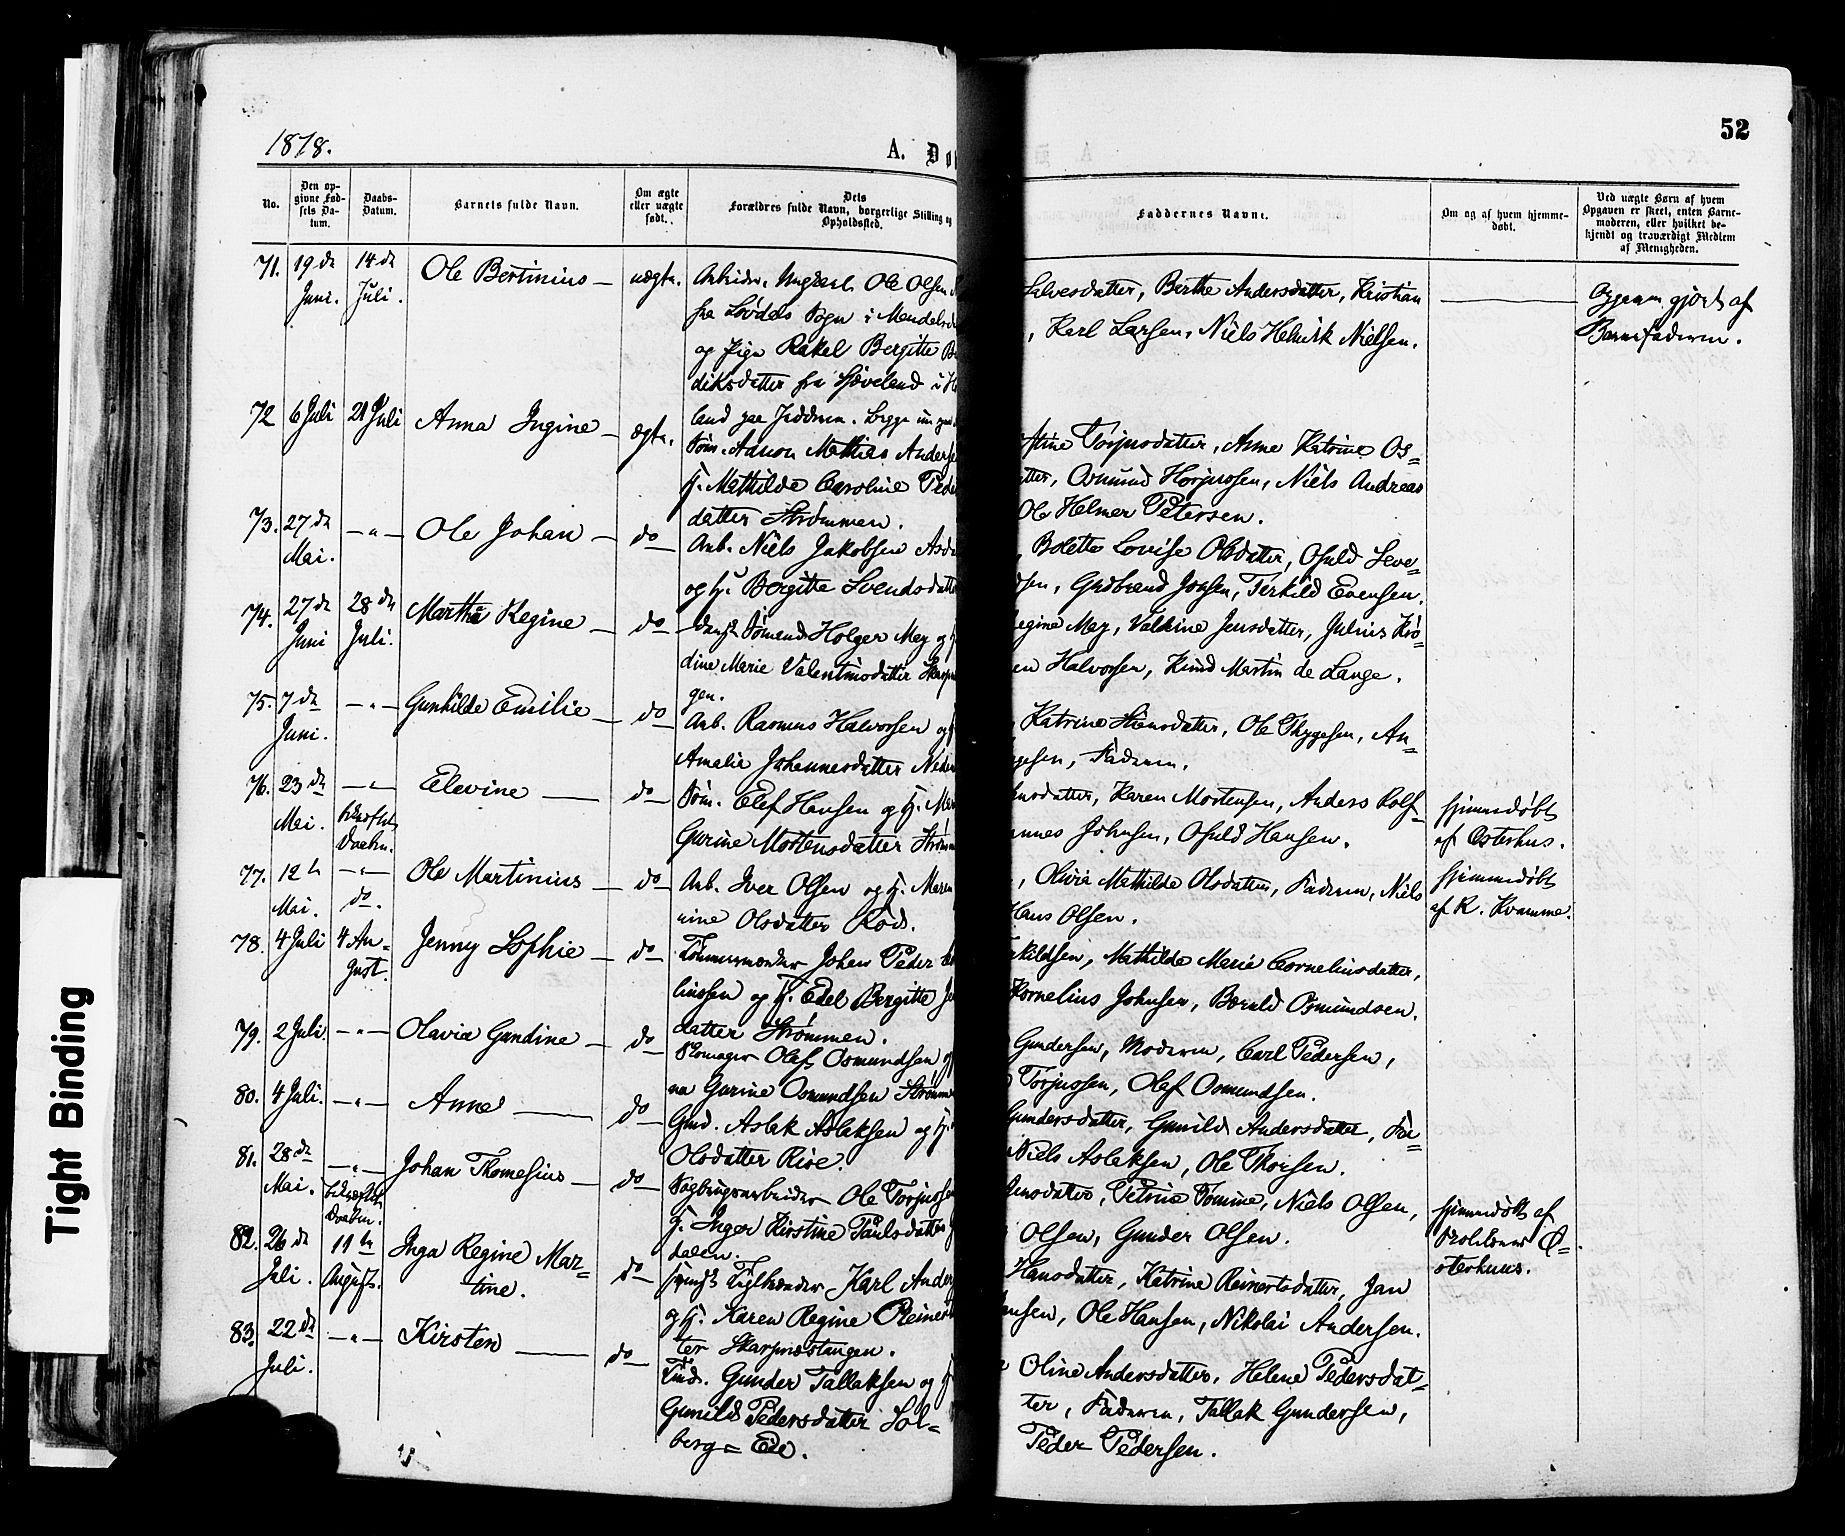 1878.
A. Dø
52
No.
Den op-
givne Fød-
sels Da-
tum.
Daabs-
Datum.
Barnets fulde Navn.
Om ægte
eller uægte
født.
Dets
Forældres fulde Navn, borgerlige Stilling og
Opholdssted.
Faddernes Navne.
Om og af hvem hjemme-
døbt.
Ved uægte Børn af hvem
Opgaven er skeet, enten Barne-
moderen, eller hvilket be-
kjendt og troværdigt Medlem
af Menigheden.
71. 19de Juni. 14de Juli. Ole Bertinius — uægte.
Arbeider, Ungkarl Ole Olsen
fra Løvdals Sogn i Mandals
og Pige Rakel Bergitte B
diksdatter fra Hæveland i H
land paa Jæderen. Begge
Salvesdatter, Berthe Andersdatter, Kristian
, Karl Larsen, Niels Henrik Nielsen.
Opgaven gjort af
Barnefaderen.
72 6 Juli 21 Juli Anna Ingine — ægte.
Søm. Aanon Mathias Anders
h. Mathilde Caroline Peder
datter Strømmen.
stine Torjusdatter, Anne Katrine Os=
tter, Osmund Torjussen, Niels Andreas
Ole Helmer Petersen.
73. 27de Mai. — " — Ole Johan — do
Arb. Niels Jakobsen Asd
og h. Bergitte Svendsdatte
, Bolette Lovise Olsdatter, Osuld Seve=
sen, Gudbrand Jonsen, Terkild Evensen.
74. 27de Juni 28de Juli. Martha Regine — do —
dansk Sømand Holger May og h
dine Marie Valentinsdatter Skarpn
gen.
egine May, Valkine Jensdatter, Julius Krö=
en Halvorsen, Knud Martin de Lange.
75. 7de Juni. — " — Gunhilde Emilie — do
Arb. Rasmus Halvorsen og h
Amalie Johannesdatter Neder
, Katrine Stiansdatter, Ole Thygesen, An=
gesen, Faderen.
76. 23de Mai. — " — bekræftet Daaben. Elevine — do —
Søm. Elef Hansen og h. Mar
Gurine Mortensdatter Strøm
nsdatter, Karen Mortensen, Anders Rolf=
annes Johnsen, Osuld Hansen.
hjemmedøbt
af Østerhus.
77. 12te Mai. — " — do. Ole Martinius — do —
Arb. Iver Olsen og h. Maren
rine Olsdatter Röd.
, Olivia Mathilde Olsdatter, Faderen, Niels
Hans Olsen.
hjemmedøbt
af K. Kvamme.
78. 4 Juli 4 Au=
gust. Jenny Sophie — do —
Tømmermænd Johan Peder
liussen og h. Edel Bergitte Je
datter Strømmen.
kildsen, Mathilde Marie Corneliusdatter,
Kornelius Johnsen, Boruld Osmundsen.
79. 2 Juli. — " — Olavia Gundine — do —
Skomager Olaf Osmundsen og
na Gurine Osmundsen Strømm
Gundersen, Moderen, Carl Pedersen,
Torjussen, Olaf Osmundsen.
80. 4 Juli. — " — Anne — do —
Grd. Aslak Aslaksen og h.
Olsdatter Rise.
Gundersdatter, Gunild Andersdatter, Fa=
Niels Aslaksen, Ole Thorsen.
81. 28de Mai. — " — bekræftet Daaben. Johan Thomesius — do —
Sagbrugsarbeider Ole Torjussen
h. Inger Kirstine Paulsdatter
dalen.
Jensdatter, Petrine Tomine, Niels Olsen,
Olsen, Gunder Olsen.
hjemmedøbt af
Ø=
sterhuus.
82. 26de Juli. 11te August. Inga Regine Mar=
tine. do —
svensk Teglbrænder Karl Ander
og h. Karen Regine Reinert
ter Skarpnæstangen.
Hansdatter, Katrine Reinertsdatter, Jan
ansen, Ole Hansen, Nikolai Andersen.
83. 22de Juli. — " — Kirsten — do —
Ind. Gunder Tallaksen og h
Gunild Pedersdatter Sol=
berg = Eie.
Oline Andersdatter, Helene Pedersdat=
ter, Faderen, Tallak Gundersen,
Peder Pedersen.
Tight Binding